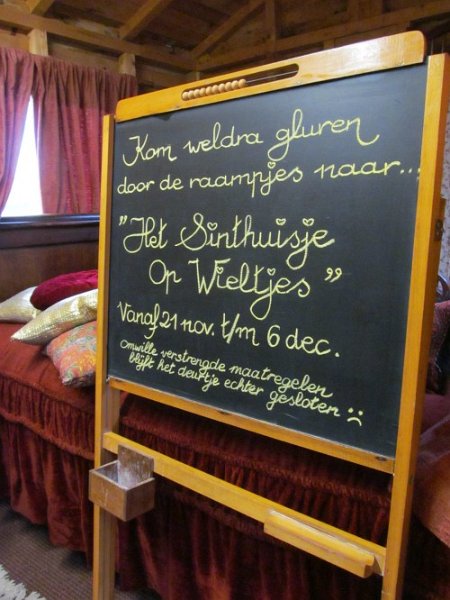 Kom weldra gluren
door de raampjes naar...
"Het Sinthuisje
Op Wieltjes"
Vanaf 21 nov. t/m 6 dec.
omwille verstrengde maatregelen
blijft het deurtje echter gesloten :(